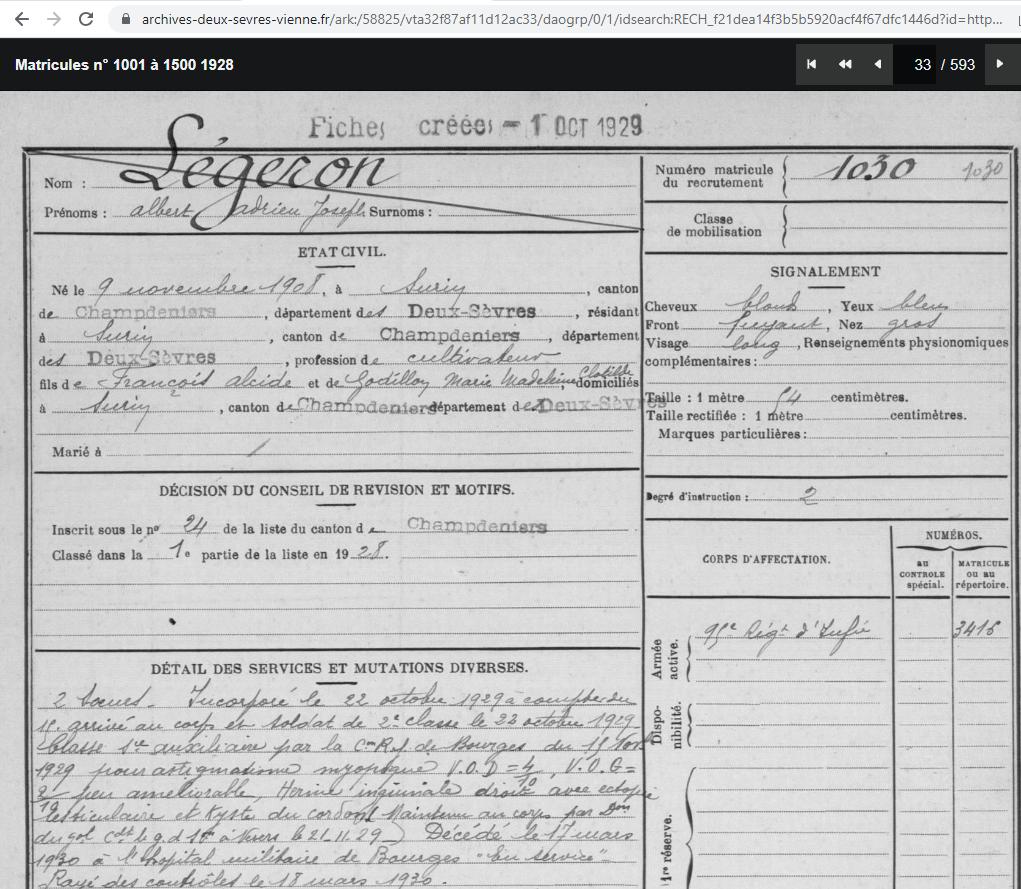 archives-deux-sevres-vienne.fr/ark:/58825/vta32f87af11d12ac33/daogrp/0/1/idsearch:RECH_f21dea14f3b5b5920acf4f67dfc1446d?id=http...
Matricules n° 1001 à 1500 1928
33 / 593
Fiches créées - 1 OCT 1929
Nom : Légeron
Prénoms : albert adrien Joseph Surnoms :
Numéro matricule du recrutement 1030 1030
Classe de mobilisation
ETAT CIVIL.
Né le 9 novembre 1908, à Surin, canton
de Champdeniers, département des Deux-Sèvres, résidant
à Surin, canton de Champdeniers, département
des Deux-Sèvres, profession de cultivateur
fils de François alcide et de Godillon Marie Madeleine Clotilde domiciliés
à Surin, canton de Champdeniers département des Deux-Sèvres
Marié à
SIGNALEMENT
Cheveux blond, Yeux bleu
Front fuyant, Nez gros
Visage long, Renseignements physionomiques
complémentaires :
Taille : 1 mètre 54 centimètres.
Taille rectifiée : 1 mètre centimètres.
Marques particulières :
Degré d'instruction : 2
DÉCISION DU CONSEIL DE REVISION ET MOTIFS.
Inscrit sous le nº 24 de la liste du canton de Champdeniers
Classé dans la 1e partie de la liste en 1928.
CORPS D'AFFECTATION.
NUMÉROS.
au CONTROLE spécial.
MATRICULE ou au répertoire.
Armée active.
95e Régt d'Infie 3416
Disponibilité.
1re réserve.
DÉTAIL DES SERVICES ET MUTATIONS DIVERSES.
2 Soeurs. Incorporé le 22 octobre 1929 à compter du
15. arrivé au corps et soldat de 2e classe le 22 octobre 1929
Classé 1re auxiliaire par la C.R. de Bourges du 15 Nov
1929 pour astigmatisme myopique V.O.D = 4/10, V.O.G =
2/10 peu améliorable, Hernie inguinale droite avec ectopie
testiculaire et Kyste du cordon (Maintenu au corps par Don
du gol Cdt le g.d 1er à Nevers le 21.11.29) Décédé le 17 mars
1930 à l'hopital militaire de Bourges "En service"
Rayé des contrôles le 18 mars 1930.